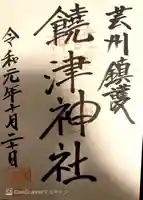 芸州鎮護
饒津神社
令和元年十月二十日